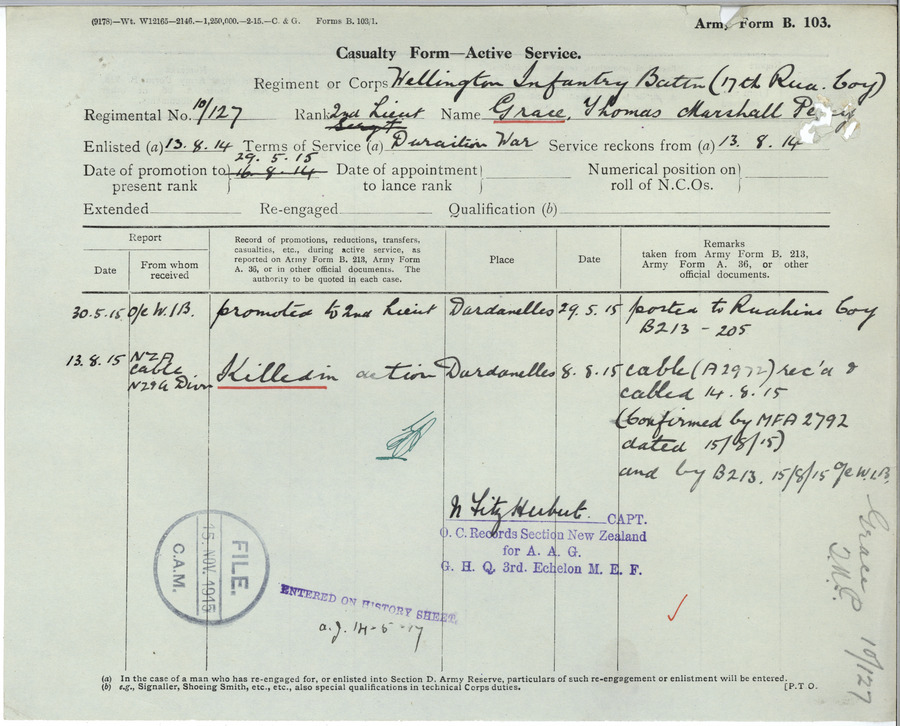 (9178)—Wt. W12165—2146.—1,250,000.—2-15.—C. & G. Forms B. 103/1.
Army Form B. 103.
Casualty Form—Active Service.
Regiment or Corps Wellington Infantry Battn (17th Rua. Coy)
Regimental No. 10/127 Rank 2nd Lieut Sergt Name Grace, Thomas Marshall Percy
Enlisted (a) 13.8.14 Terms of Service (a) Duraition War Service reckons from (a) 13. 8. 14
Date of promotion to present rank 29.5.15 16.8.14 Date of appointment to lance rank Numerical position on roll of N.C.Os.
Extended Re-engaged Qualification (b)
Report
Date
From whom received
Record of promotions, reductions, transfers, casualties, etc., during active service, as reported on Army Form B. 213, Army Form A. 36, or in other official documents. The authority to be quoted in each case.
Place
Date
Remarks
taken from Army Form B. 213, Army Form A. 36, or other official documents.
30.5.15 O/c W.I.B. promoted to 2nd Lieut Dardanelles 29.5.15 posted to Ruahine Coy
B213 - 205
13.8.15 NZA Cable NZ&A Divn Killed in action Dardanelles 8.8.15 cable (A2972) rec'd &
cabled 14.8.15
(Confirmed by MFA 2792
dated 15/8/15)
and by B213. 15/8/15 O/c W.I.B.
N FitzHerbert. CAPT.
O. C. Records Section New Zealand
for A. A. G.
G. H. Q. 3rd. Echelon M. E. F.
FILE.
15. NOV. 1915
C.A.M.
ENTERED ON HISTORY SHEET.
a.j. 14-5-17
Grace
T.M.P.
10/127
(a) In the case of a man who has re-engaged for, or enlisted into Section D. Army Reserve, particulars of such re-engagement or enlistment will be entered.
(b) e.g., Signaller, Shoeing Smith, etc., etc., also special qualifications in technical Corps duties.
[P.T.O.